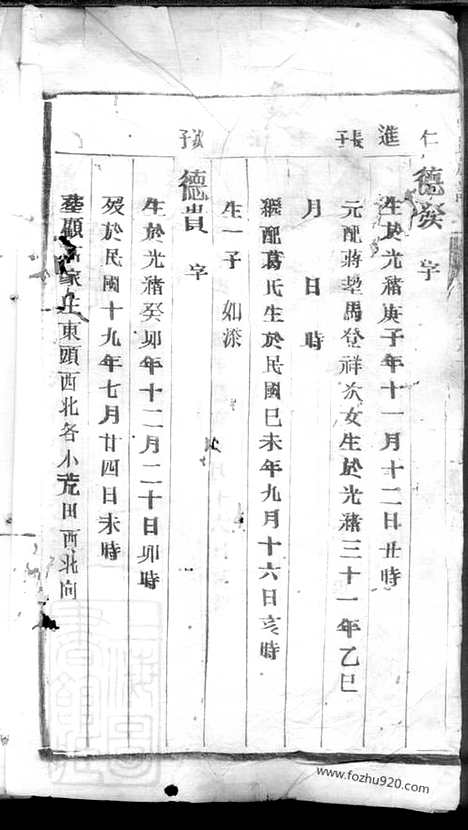 仁進長子
德發 字
生於光緒庚子年十一月十二日丑時
元配蔣墊馬登祥次女生於光緒三十一年乙巳
月 日 時
繼配葛氏生於民國己未年九月十六日亥時
生一子 如滦
次子
德貴 字
生於光緒癸卯年十二月二十日卯時
歿於民國十九年七月廿四日未時
家 東頭西北各小荒田西北向
www.fozhu920.com